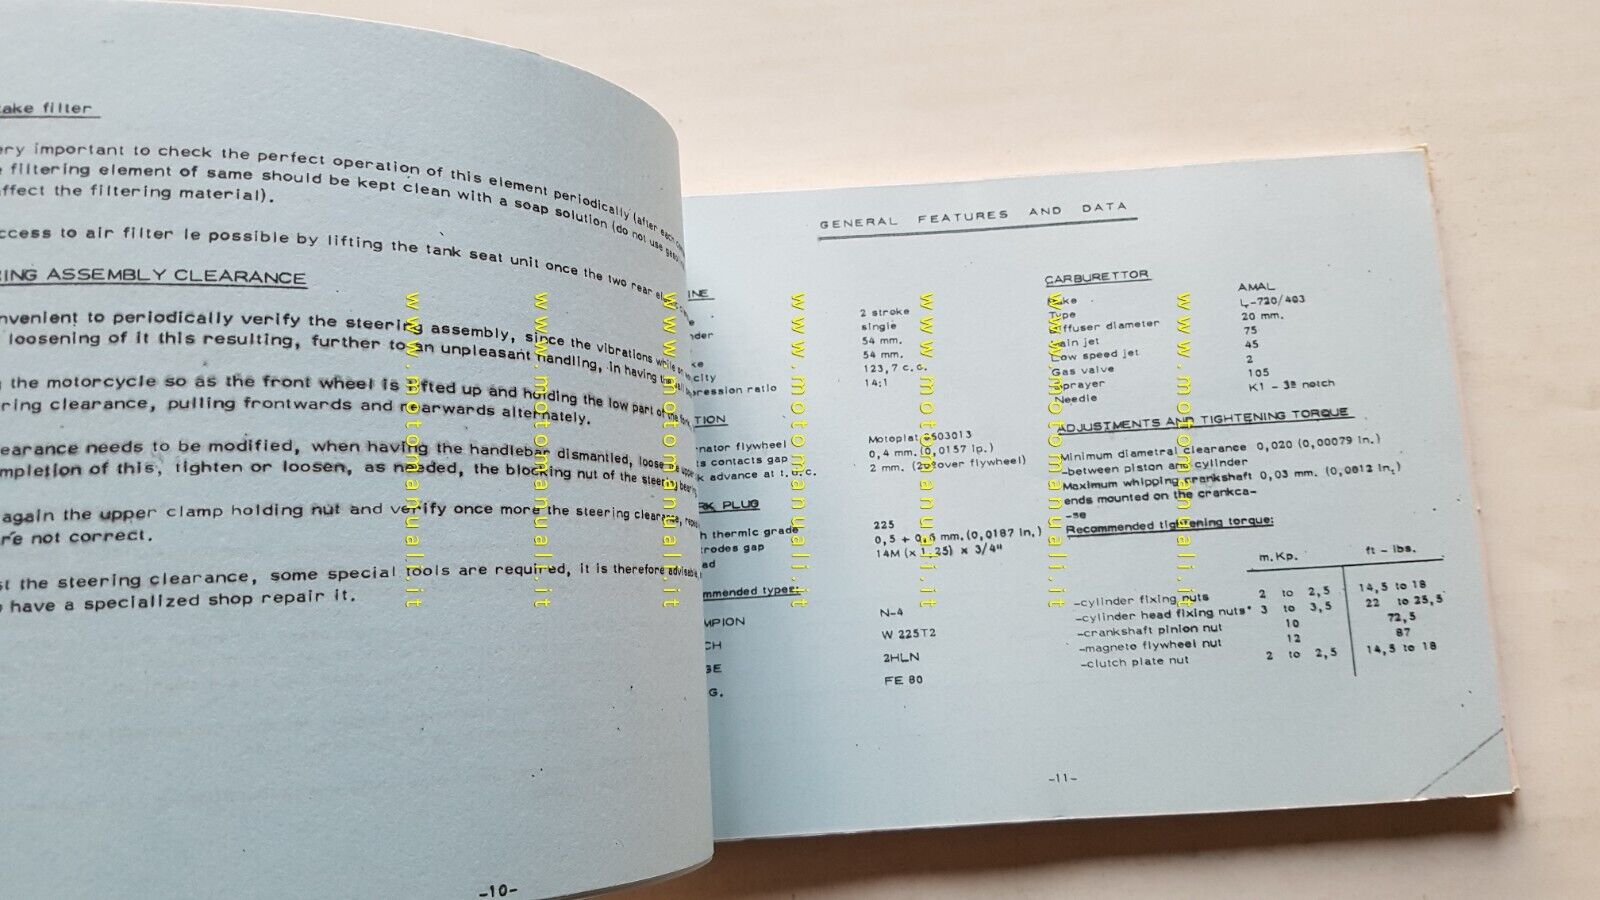 take filter
ery important to check the perfect operation of this element periodically (after each
filtering element of same should be kept clean with a soap solution (do not use
affect the filtering material).
ccess to air filter le possible by lifting the tank seat unit once the two rear
RING ASSEMBLY CLEARANCE
nvenient to periodically verify the steering assembly, since the vibrations while
loosening of it this resulting, further to an unpleasant handling, in having the
the motorcycle so as the front wheel is lifted up and holding the low part of the
ring clearance, pulling frontwards and rearwards alternately.
earance needs to be modified, when having the handlebar dismantled, loose upper
mpletion of this, tighten or loosen, as needed, the blocking nut of the steering bearing
again the upper clamp holding nut and verify once more the steering clearance,
re not correct.
st the steering clearance, some special tools are required, it is therefore advisable,
o have a specialized shop repair it.
-10-
GENERAL FEATURES AND DATA
INE
2 stroke
nder single
54 mm.
ke 54 mm.
city 123,7 c.c.
pression ratio 14:1
TION
nator flywheel Motoplat 9503013
ts contacts gap 0,4 mm. (0,0157 ip.)
k advance at t.d.c. 2 mm. (2a over flywheel)
RK PLUG
h thermic grade 225
trodes gap 0,5 + 0,6 mm. (0,0187 in.)
ad 14M (x 1,25) x 3/4"
mmended types:
MPION N-4
CH W 225T2
GE 2HLN
G. FE 80
CARBURETTOR
Make AMAL
Type L-720/403
Diffuser diameter 20 mm.
Main jet 75
Low speed jet 45
Gas valve 2
Sprayer 105
Needle K1 - 3ª notch
ADJUSTMENTS AND TIGHTENING TORQUE
Minimum diametral clearance 0,020 (0,00079 in.)
-between piston and cylinder
Maximum whipping crankshaft 0,03 mm. (0,0012 in.)
ends mounted on the crankca-
-se
Recommended tightening torque:
m.Kp. ft - lbs.
-cylinder fixing nuts 2 to 2,5 14,5 to 18
-cylinder head fixing nuts 3 to 3,5 22 to 25,5
-crankshaft pinion nut 10 72,5
-magneto flywheel nut 12 87
-clutch plate nut 2 to 2,5 14,5 to 18
-11-
www.motomanuali.it
www.motomanuali.it
www.motomanuali.it
www.motomanuali.it
www.motomanuali.it
www.motomanuali.it
www.motomanuali.it